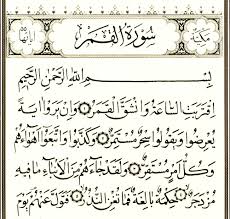 سُورَةُ القَمَرِ
بِسْمِ اللَّهِ الرَّحْمَٰنِ الرَّحِيمِ
اقْتَرَبَتِ السَّاعَةُ وَانْشَقَّ الْقَمَرُ ۝ وَإِنْ يَرَوْا آيَةً
يُعْرِضُوا وَيَقُولُوا سِحْرٌ مُسْتَمِرٌّ ۝ وَكَذَّبُوا وَاتَّبَعُوا أَهْوَاءَهُمْ
وَكُلُّ أَمْرٍ مُسْتَقِرٌّ ۝ وَلَقَدْ جَاءَهُمْ مِنَ الْأَنْبَاءِ مَا فِيهِ
مُزْدَجَرٌ ۝ حِكْمَةٌ بَالِغَةٌ فَمَا تُغْنِ النُّذُرُ ۝ فَتَوَلَّ عَنْهُمْ يَوْمَ